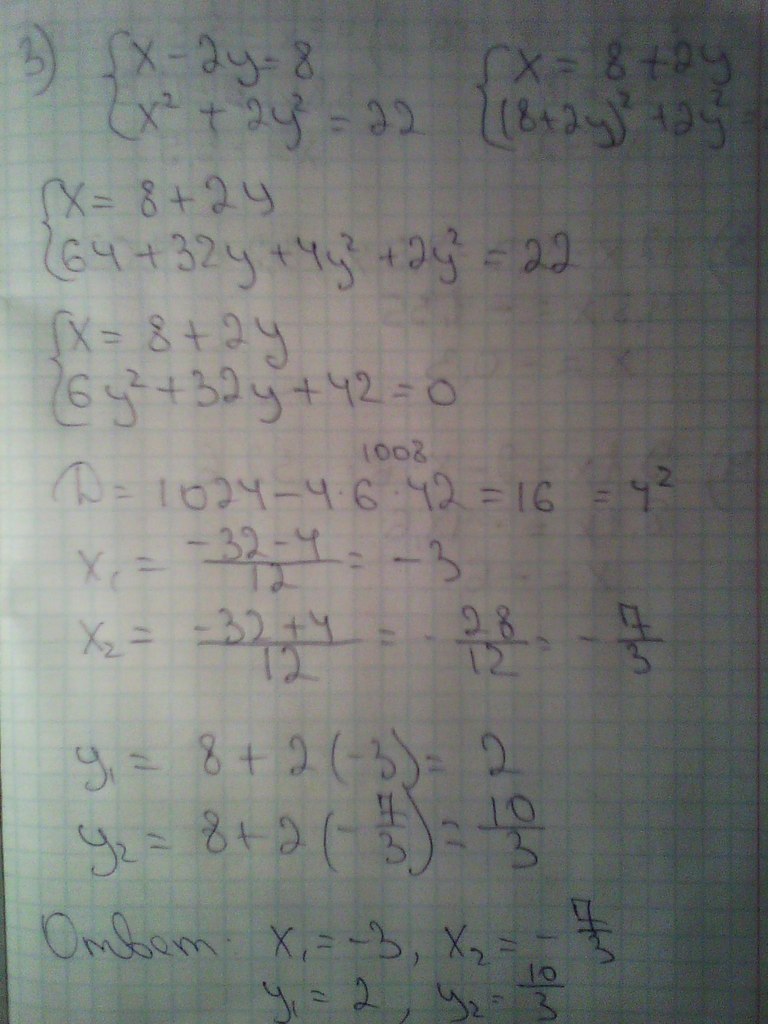 3) { x - 2y = 8   { x = 8 + 2y
{ x² + 2y² = 22   { (8+2y)² + 2y² =
{ x = 8 + 2y
{ 64 + 32y + 4y² + 2y² = 22
{ x = 8 + 2y
{ 6y² + 32y + 42 = 0
1008
D = 1024 - 4·6·42 = 16 = 4²
x₁ = (-32-4)/12 = -3
x₂ = (-32+4)/12 = -28/12 = -7/3
y₁ = 8 + 2(-3) = 2
y₂ = 8 + 2(-7/3) = 10/3
Ответ: x₁ = -3, x₂ = -7/3
y₁ = 2, y₂ = 10/3